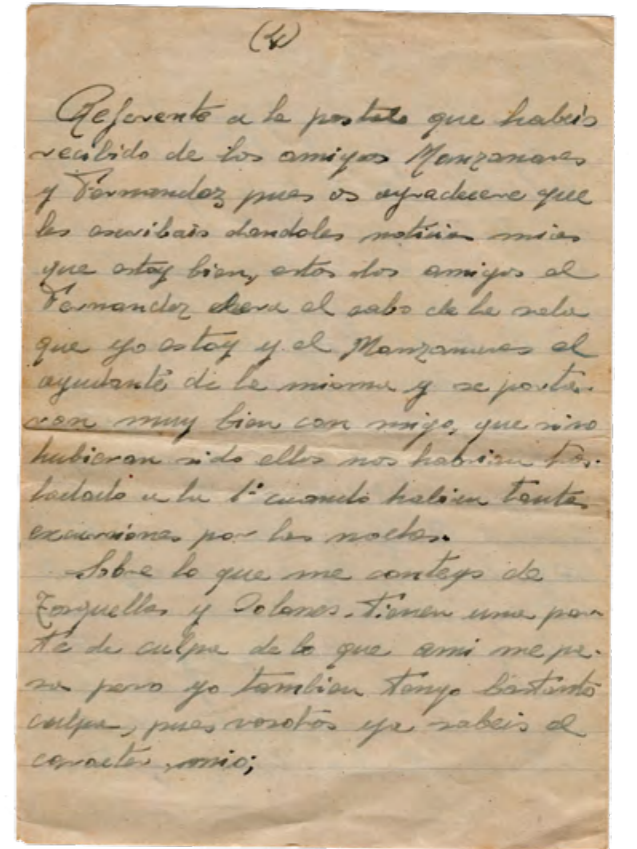 (4)
Referente a la postale que habeis
recibido de los amigos Manzanares
y Fernandez pues os agradecere que
les escribais dandoles noticias mias
que estoy bien, estos dos amigos el
Fernandez era el cabo de la sala
que yo estoy y el Manzanares el
ayudante de la misma y se porta-
ron muy bien con migo, que sino
hubieran sido ellos nos habrian tras-
ladado a la 1ª cuando habian tantas
excursiones por las noches.
Sobre lo que me contays de
Torquellas y Solanes tienen una par-
te de culpa de lo que ami me pa-
sa pero yo tambien tengo bastante
culpa, pues vosotros ya sabeis el
caracter mio;